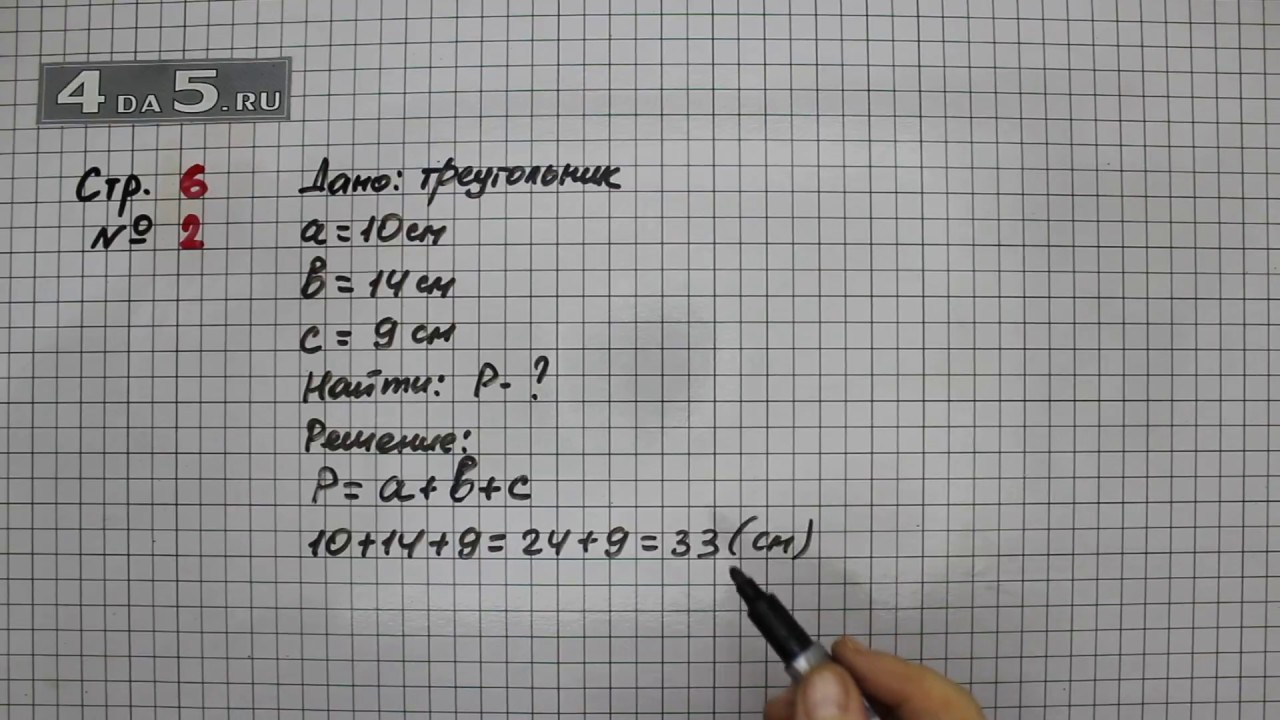 4DA5.RU
Стр. 6
№ 2
Дано: треугольник
a = 10 см
в = 14 см
c = 9 см
Найти: P - ?
Решение:
P = a + в + c
10 + 14 + 9 = 24 + 9 = 33 (см)